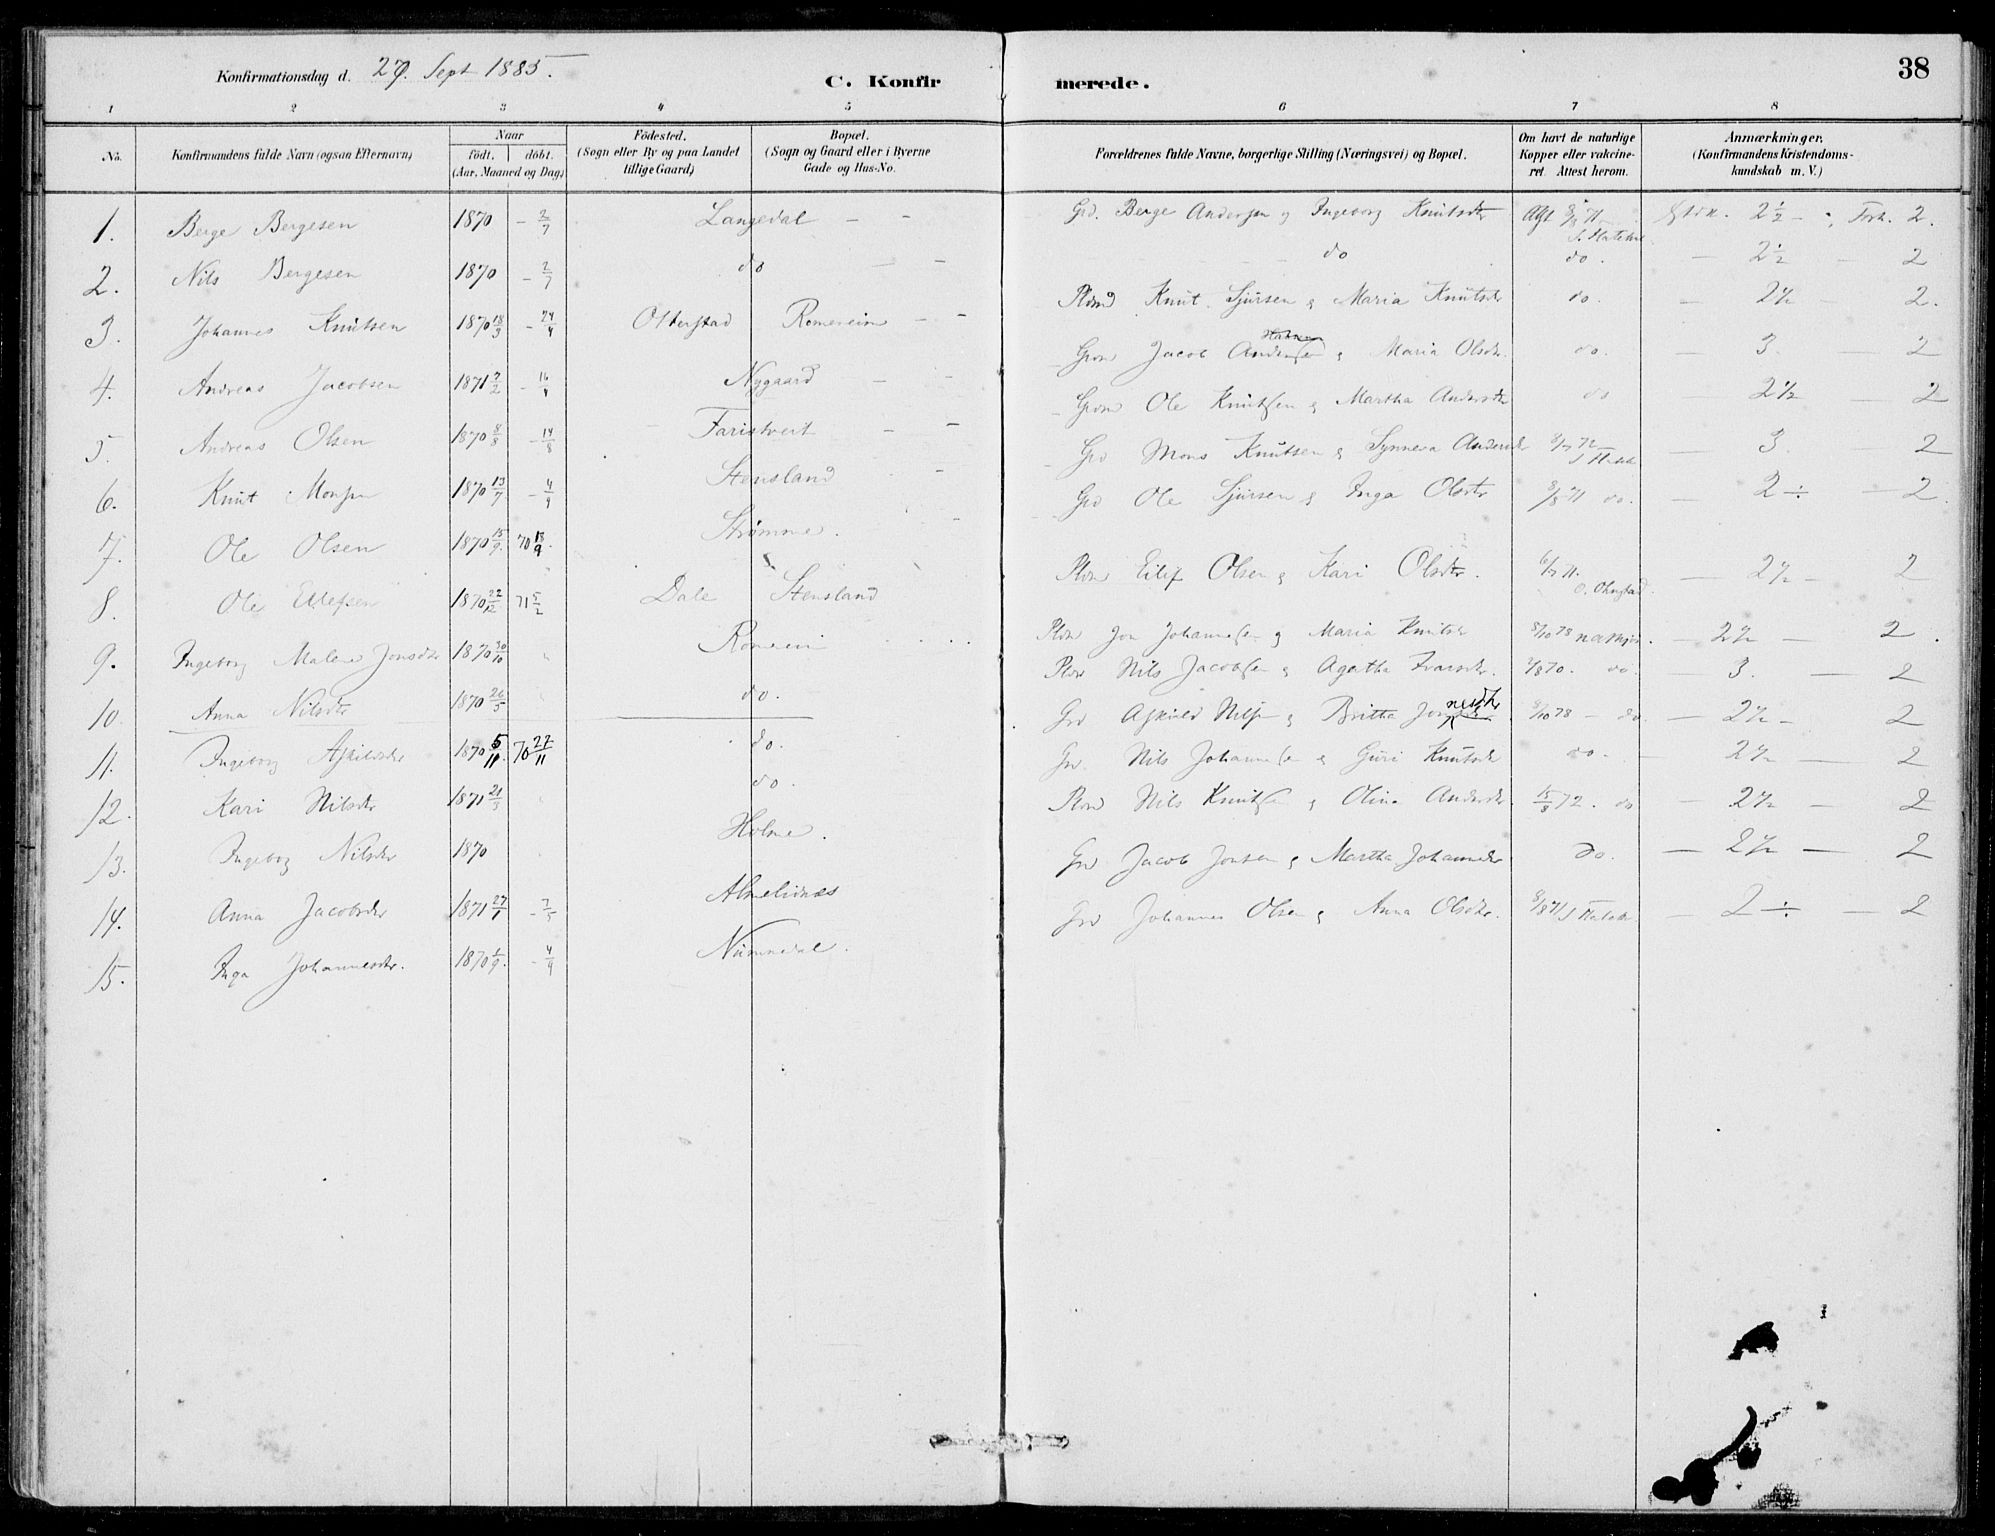 38
Konfirmationsdag d. 27. Sept 1885.
C. Konfirmerede.
1 2 3 4 5 6 7 8
No. Konfirmandens fulde Navn (ogsaa Efternavn) Naar födt, döbt. (Aar, Maaned og Dag) Födested. (Sogn eller By og paa Landet tillige Gaard) Bopæl. (Sogn og Gaard eller i Byerne Gade og Hus-No. Forældrenes fulde Navne, borgerlige Stilling (Næringsvei) og Bopæl. Om havt de naturlige Kopper eller vakcineret. Attest herom. Anmærkninger, (Konfirmandens Kristendomskundskab m. V.)
1. Berge Bergesen 1870 - 2/7 Langedal - - Grd. Berge Andersen og Ingeborg Knutsdtr 2 1/2 - 2.
2. Nils Bergesen 1870 - 2/7 do - - do do. - 2 1/2 - 2
3. Johannes Knutsen 1870 18/3 - 24/4 Otterstad Romerein - - Knut Sjursen & Maria Knutsdr do. - 2 1/2 - 2.
4. Andreas Jacobsen 1871 7/2 - 16/4 Nygaard - - Jacob Andersen & Maria Olsdr. do. - 3 - 2
5. Andreas Olsen 1870 8/8 - 14/8 - - Ole Knutsen & Martha Andersdr do - 2 1/2 - 2
6. Knut Monsen 1870 13/7 - 4/9 Stensland - - Grd Mons Knutsen & Synneva Andersdr - 3. 2
7. Ole Olsen 1870 15/9. 70 18/9. Strømme. - Grd Ole Sjursen & Inga Olsdtr 8/8 71 do. - 2 ÷ - 2
8. Ole Ellefsen 1870 22/12 71 5/2 Dale Stensland Olsen & Kari Olsdtr. 71. - 2 1/2 - 2
9. Ingeborg Malene Jonsdtr 1870 30/10 Romerein Jon Johannesen og Maria Knutsdr 8/10 78 - 2 1/2 - 2.
10. Anna Nilsdtr 1870 26/5 do. Nils Jacobsen & Agatha Ivarsdr. do. - 3. - 2
11. Ingeborg Askildsdr 1870 5/11. 70 27/11 do. Grd Askild Nilsen & Britta 8/10 78 - do - 2 1/2 - 2
12. Kari Nilsdtr 1871 21/3 do. Grd. Nils Johannesen & Guri Knutsdr do. - 2 1/2 - 2
13. Ingeborg Nilsdr 1870 Holme. Nils Knutsen & Olina Andersdr. 15/8 72. do - 2 1/2 - 2
14. Anna Jacobsdr 1871 27/1 - 7/5 Almelidnæs Grd Jacob Jonsen & Martha Johannesdr do. - 2 1/2 - 2
15. Inga Johannesdr. 1870 1/9. - 4/9 Numnedal. Grd Johannes Olsen & Anna Olsdtr. - 2 ÷ - 2